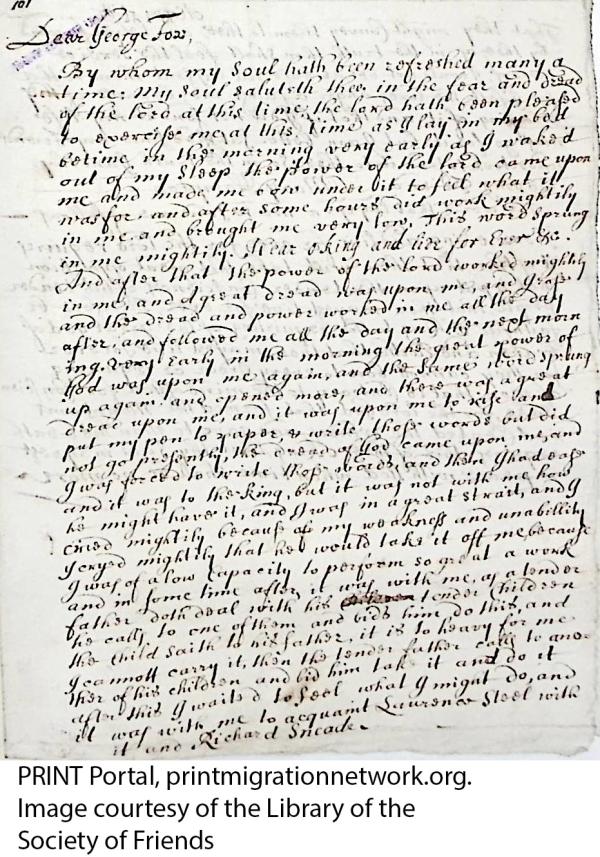 101
Dear George Fox,
By whom my Soul hath been refreshed many a
time: my Soul saluteth thee in the fear and dread
of the lord at this time, the lord hath been pleased
to exercise me at this time as I lay in my bed
betime in the morning very early as I waked
out of my Sleep the power of the lord came upon
me and made me bow under it to feel what it
was for, and after some hours did work mightily
in me and brought me very low, This word Sprung
in me mightily. Hear o king and live for Ever &c.
And after that the power of the lord worked mightily
in me, and A great dread was upon me, and
and the dread and power worked in me all the day
after, and followed me all the day and the next morn
ing, very Early in the morning the great power of
God was upon me again, and the Same word sprung
up again and opened more, and there was a great
dread upon me, and it was upon me to rise and
put my pen to paper, & write those words but did
not go presently, the dread of God came upon me, and
I was forced to write those words, and then I had ease
and it was to the King, but it was not with me how
he might have it, and I was in a great strait, and I
cried mightily because of my weakness and unability
I cryed mightily that hee would take it off me, because
I was of a low Capacity to perform so great a work
and in some time after, it was with me, as a tender
father doth deal with his tender Children
he calls to one of them and bids him do this, and
the Child saith to his father, it is to heavy for me
I cannott carry it, then the tender father calls to ano=
ther of his children and bid him take it and do it
after this I waited to feel what I might do, and
it was with me to acquaint Laurence Steel with
it and Richard Sneade.
PRINT Portal, printmigrationnetwork.org.
Image courtesy of the Library of the
Society of Friends